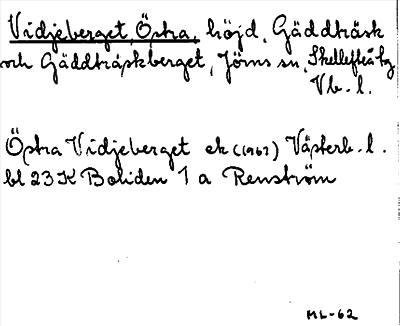 Vidjeberget, Östra, höjd, Gäddträsk
och Gäddträskberget, Jörns sn, Skellefteå kg
Vb. l.
Östra Vidjeberget ek (1967) Västerb. l.
bl 23 K Boliden 1 a Renström
ML-62